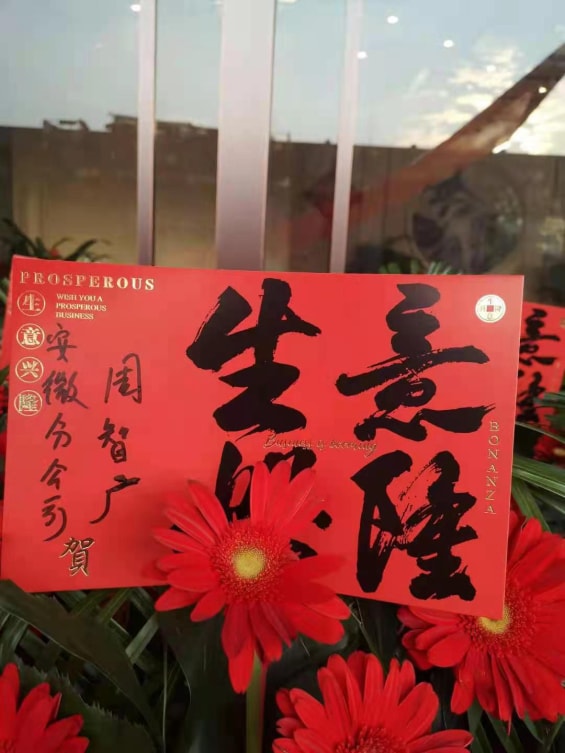 PROSPEROUS
WISH YOU A
PROSPEROUS
BUSINESS
生意兴隆
安徽分公司
周智广
賀
生意
兴隆
BONANZA